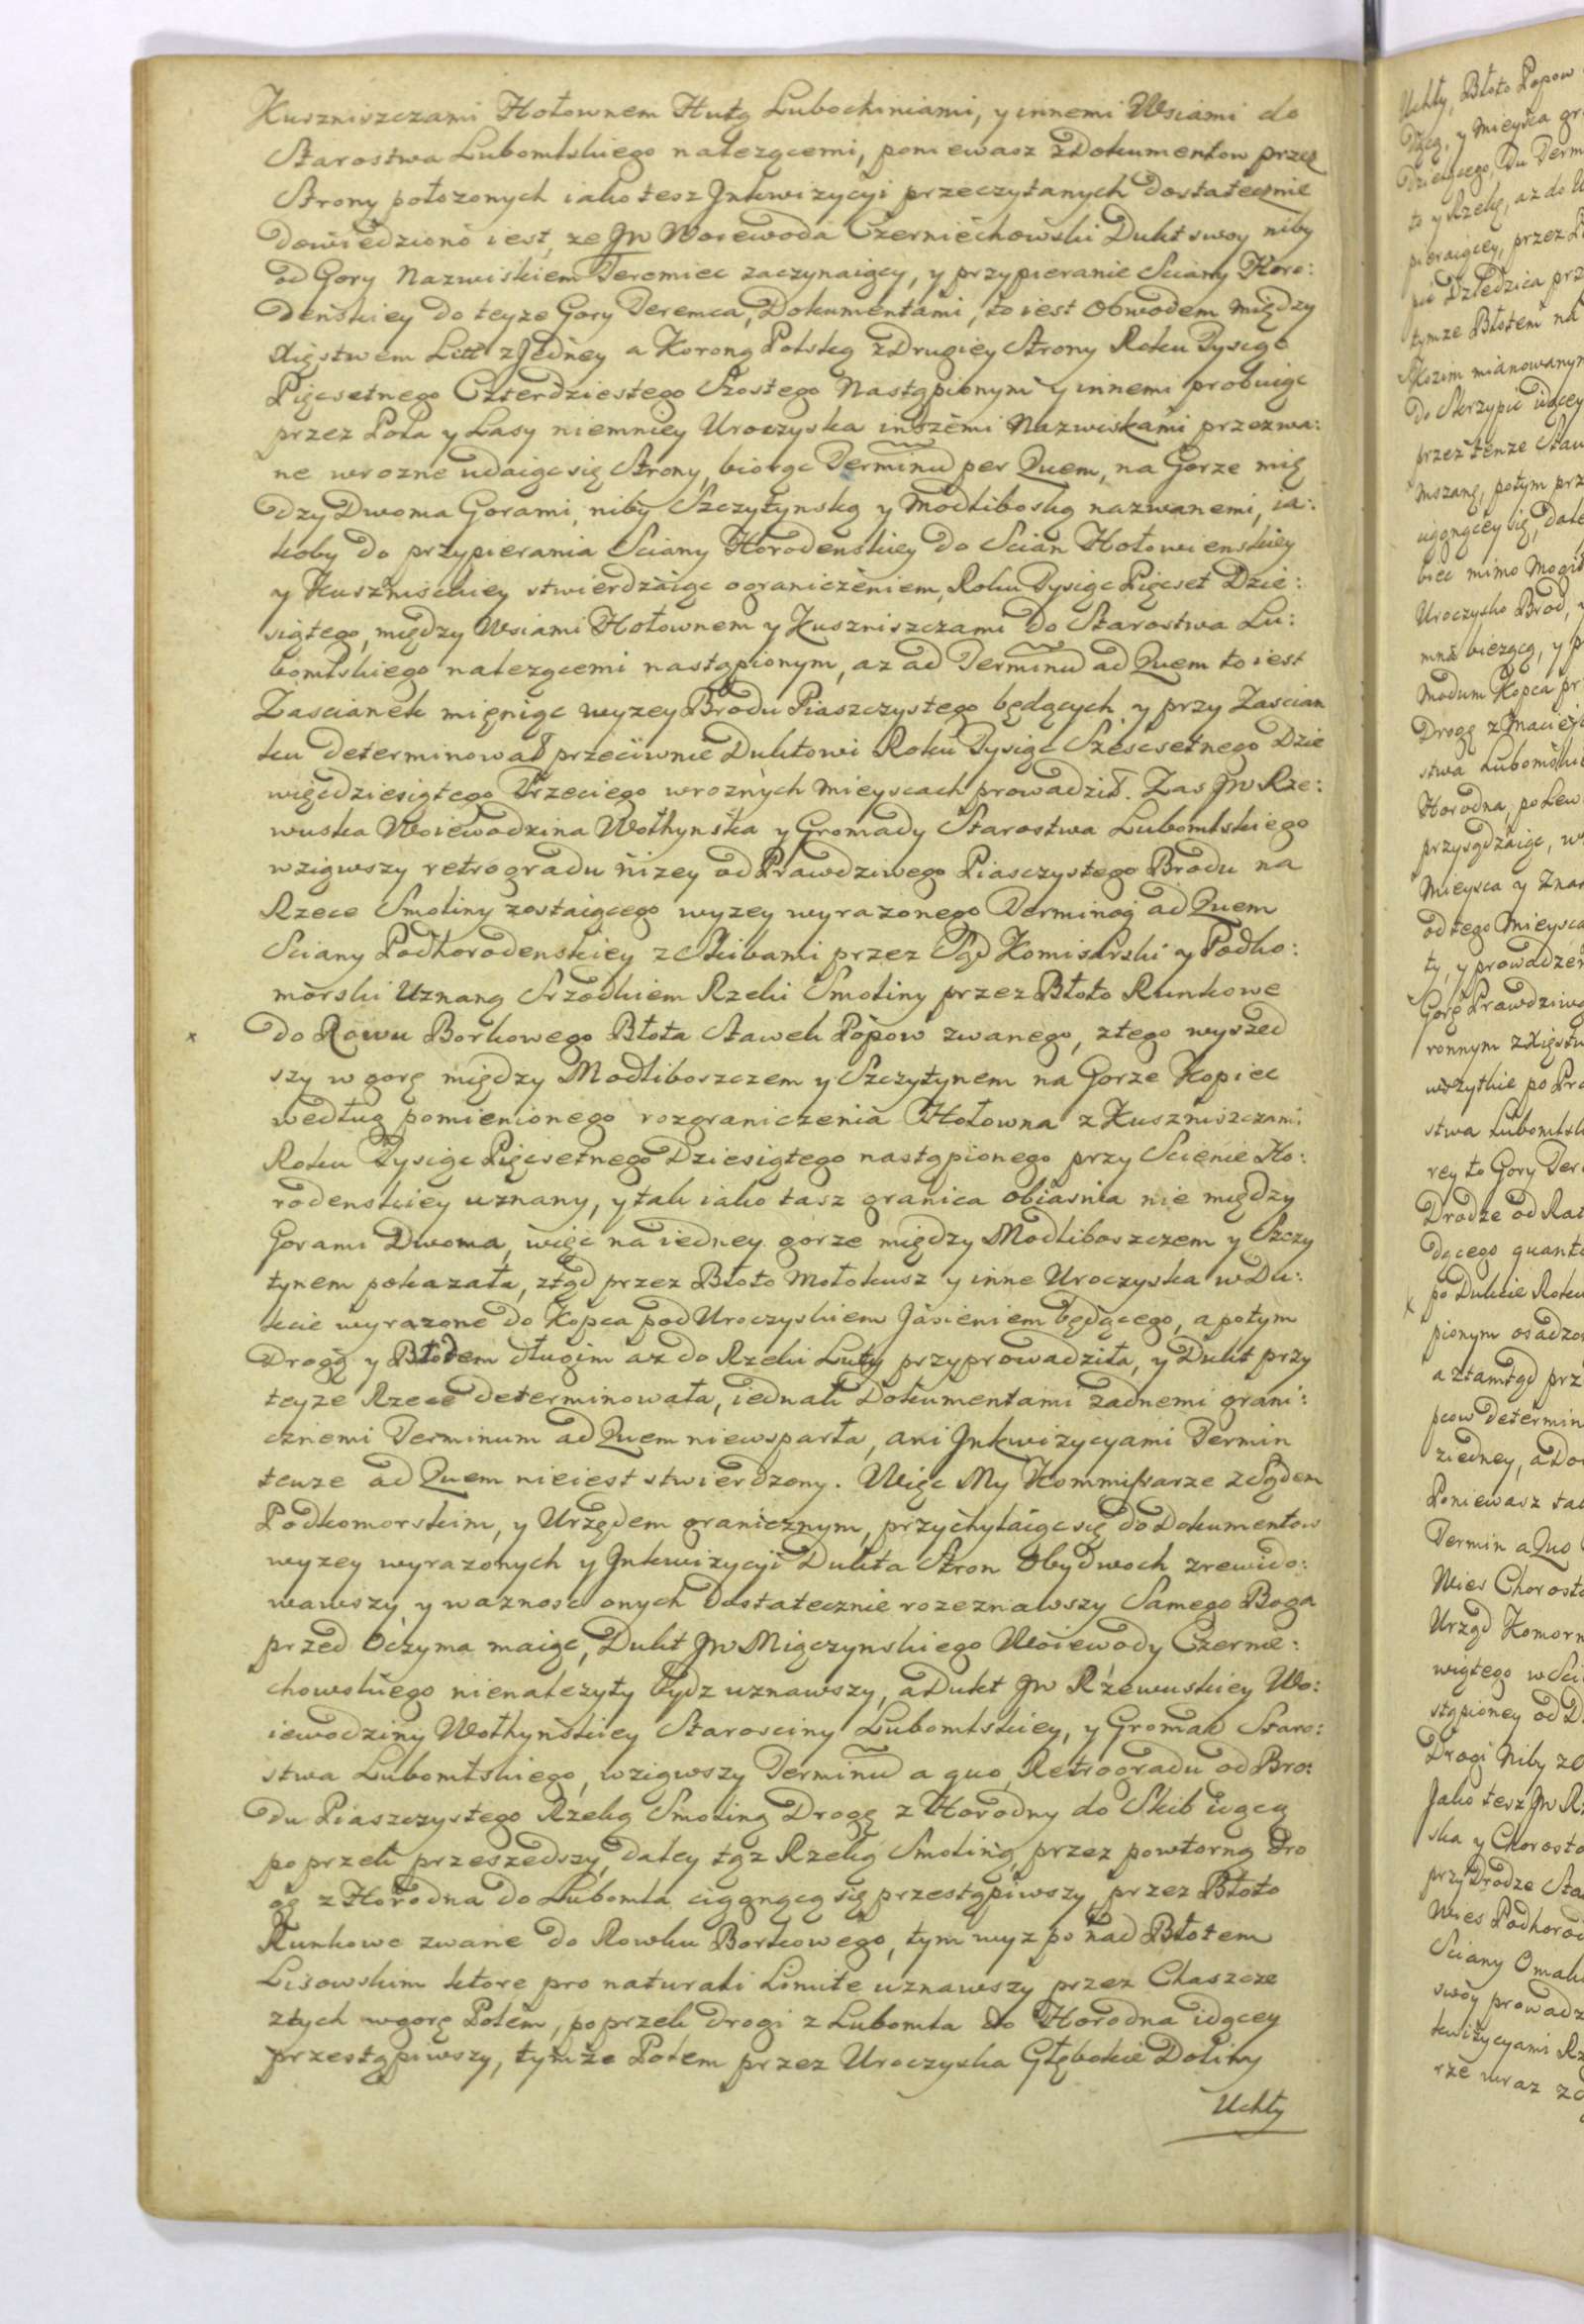 Kuszniszczami Hołownem Hutą Lubochiniami, y innemi Wsiami do
Starostwa Lubomlskiego należącemi, poniewasz z Dokumentow przez
Strony położonych iako tesz Jnkwizycyi przeczytanych dostatecznie
dowiedziono iest, ze Jw Woiewoda Czerniechowski Dukt swoy niby
od Gory Nazwiskiem Teremiec zaczynaiący, y przypieranie Sciany Horo:
denskiey do teyze Gory Teremca, Dokumentami, to iest Obwodem między
Xięstwem Litt z Jedney a Koroną Polską z Drugiey Strony Roku Tysiąc
Pięcsetnego Czterdziestego Szostego Nastąpionym y innemi probuiąc
przez Pola y Lasy niemniey Uroczyska inszemi Nazwiskami przezwa:
ne w rozne udaiąc się Strony, biorąc Terminu per Quem, na Gorze mię
dzy Dwoma Gorami, niby Szczytynską y Modliboską nazwanemi, ia:
koby do przypierania Sciany Horodenskiey do Scian Hołowienskiey
y Kusznisckiey stwierdzaiąc ograniczeniem, Roku Tysiąc Pięcset Dzie:
siątego, między Wsiami Hołownem y Kuszniszczami do Starostwa Lu:
bomlskiego nalezącemi nastąpionym, az ad Terminu ad Quem to iest
Zascianek mieniąc wyzey Brodu Piaszczystego będących y przy Zascian
ku determinował przeciwnie Duktowi Roku Tysiąc Szescsetnego Dzie
więcdziesiątego Trzeciego w roznych mieyscach prowadził. Zas Jw Rze:
wuska Woiewodzina Wołhynska y Gromady Starostwa Lubomlskiego
wziąwszy retrogradu nizey od Prawdziwego Piasczystego Brodu na
Rzece Smoliny zostaiącego wyzey wyrazonego Terminoj ad Quem
Sciany Podhorodenskiey z Skibami przez Sąd Komisarski y Podko:
morski Uznaną Srzodkiem Rzeki Smoliny przez Błoto Runkowe
x do Rowu Borkowego Błota Stawek Popow zwanego, z tego wyszed
szy w gorę między Modliboszczem y Szczytynem na Gorze Kopiec
według pomienionego rozgraniczenia Hołowna z Kuszniszczami
Roku Tysiąc Pięcsetnego Dziesiątego nastąpionego przy Scienie Ho:
rodenskiey uznany, y tak iako tasz granica obiasnia nie między
Gorami Dwoma, więc na iedney gorze między Modliboszczem y Szczy
tynem pokazała, ztąd przez Błoto Mołokusz y inne Uroczyska w Du:
kcie wyrazone do Kopca pod Uroczyskiem Jasieniem będącego, a potym
Drogą y Błotem długim az do Rzeki Luty przyprowadziła, y Dukt przy
teyze Rzece determinowała, iednak Dokumentami zadnemi grani:
cznemi Terminum ad Quem niewsparła, ani Jnkwizycyami Termin
tenze ad Quem nieiest stwierdzony. Więc My Kommissarze z Sądem
Podkomorskim, y Urzędem granicznym, przychylaiąc się do Dokumentow
wyzey wyrazonych y Jnkwizycyi Dukta Stron Obydwoch zrewido:
wawszy, y waznosc onych dostatecznie rozeznawszy Samego Boga
przed Oczyma maiąc, Dukt Jw Miączynskiego Woiewody Czernie:
chowskiego nienależyty bydz uznawszy, a Dukt Jw Rzewuskiey Wo:
iewodziny Wołhynskiey Starosciny Lubomlskiey, y Gromad Staro:
stwa Lubomlskiego, wziąwszy Terminu a quo, Retrogradu od Bro:
du Piaszczystego Rzeką Smoliną Drogę z Horodny do Skib idącą
poprzek przeszedszy, daley tąz Rzeką Smoliną, przez powtorną dro
gę z Horodna do Lubomla ciągnącą się przestąpiwszy, przez Błoto
Runkowe zwane do Rowku Borkowego, tym wyz po nad Błotem
Lisowskim ktore pro naturali Limite uznawszy przez Chaszcze
z tych w gorę Polem, poprzek drogi z Lubomla do Horodna idącey
przestąpiwszy, tymze Polem przez Uroczyska Głębokie Doliny
Uchły